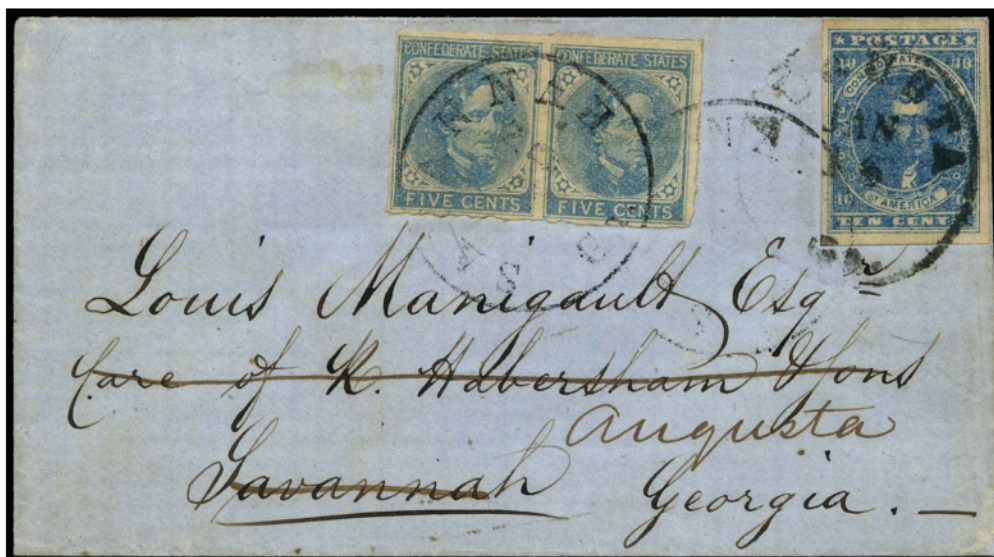 CONFEDERATE STATES CONFEDERATE STATES
FIVE CENTS FIVE CENTS
★ POSTAGE ★
10 10
CONFEDERATE STATES
OF AMERICA
10 10
TEN CENTS
Louis Manigault Esqr
Care of R. Habersham & Sons
Augusta
Savannah Georgia. —